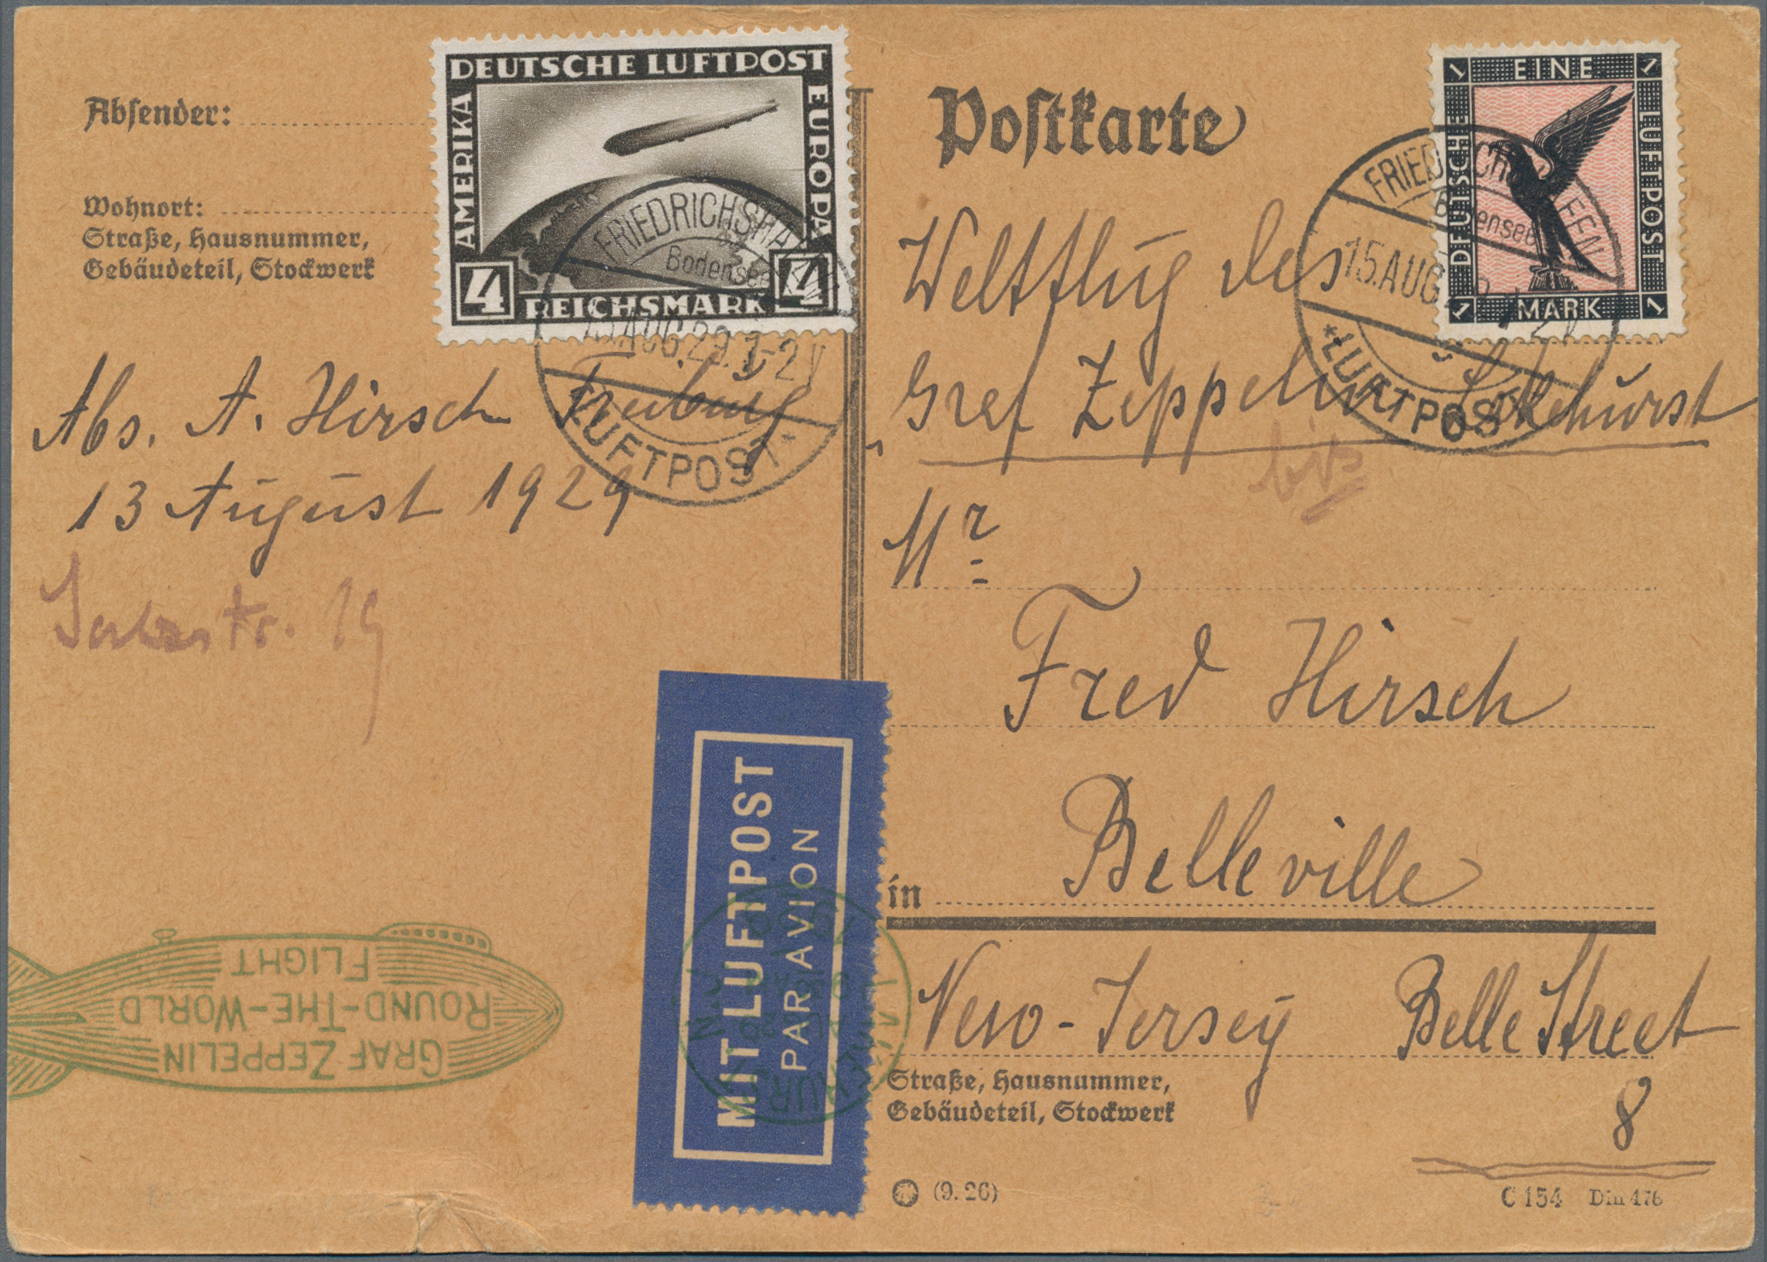 Absender:
Wohnort:
Straße, Hausnummer,
Gebäudeteil, Stockwerk
DEUTSCHE LUFTPOST
AMERIKA
EUROPA
4 REICHSMARK 4
FRIEDRICHSHAFEN
Bodensee
15.AUG.29.1-2V
LUFTPOST
Abs. A. Hirsch Freiburg
13 August 1929
str. 19
Postkarte
1 EINE 1
DEUTSCHE
LUFTPOST
1 MARK 1
FRIEDRICHSHAFEN
Bodensee
15.AUG.
*LUFTPOST
Weltflug des
Graf Zeppelin Lakehurst
bis
Mr
Fred Hirsch
in Belleville
New-Jersey Belle Street
8
Straße, Hausnummer,
Gebäudeteil, Stockwerk
(9.26)
C 154 Din 476
MIT LUFTPOST
PAR AVION
GRAF ZEPPELIN
ROUND-THE-WORLD
FLIGHT